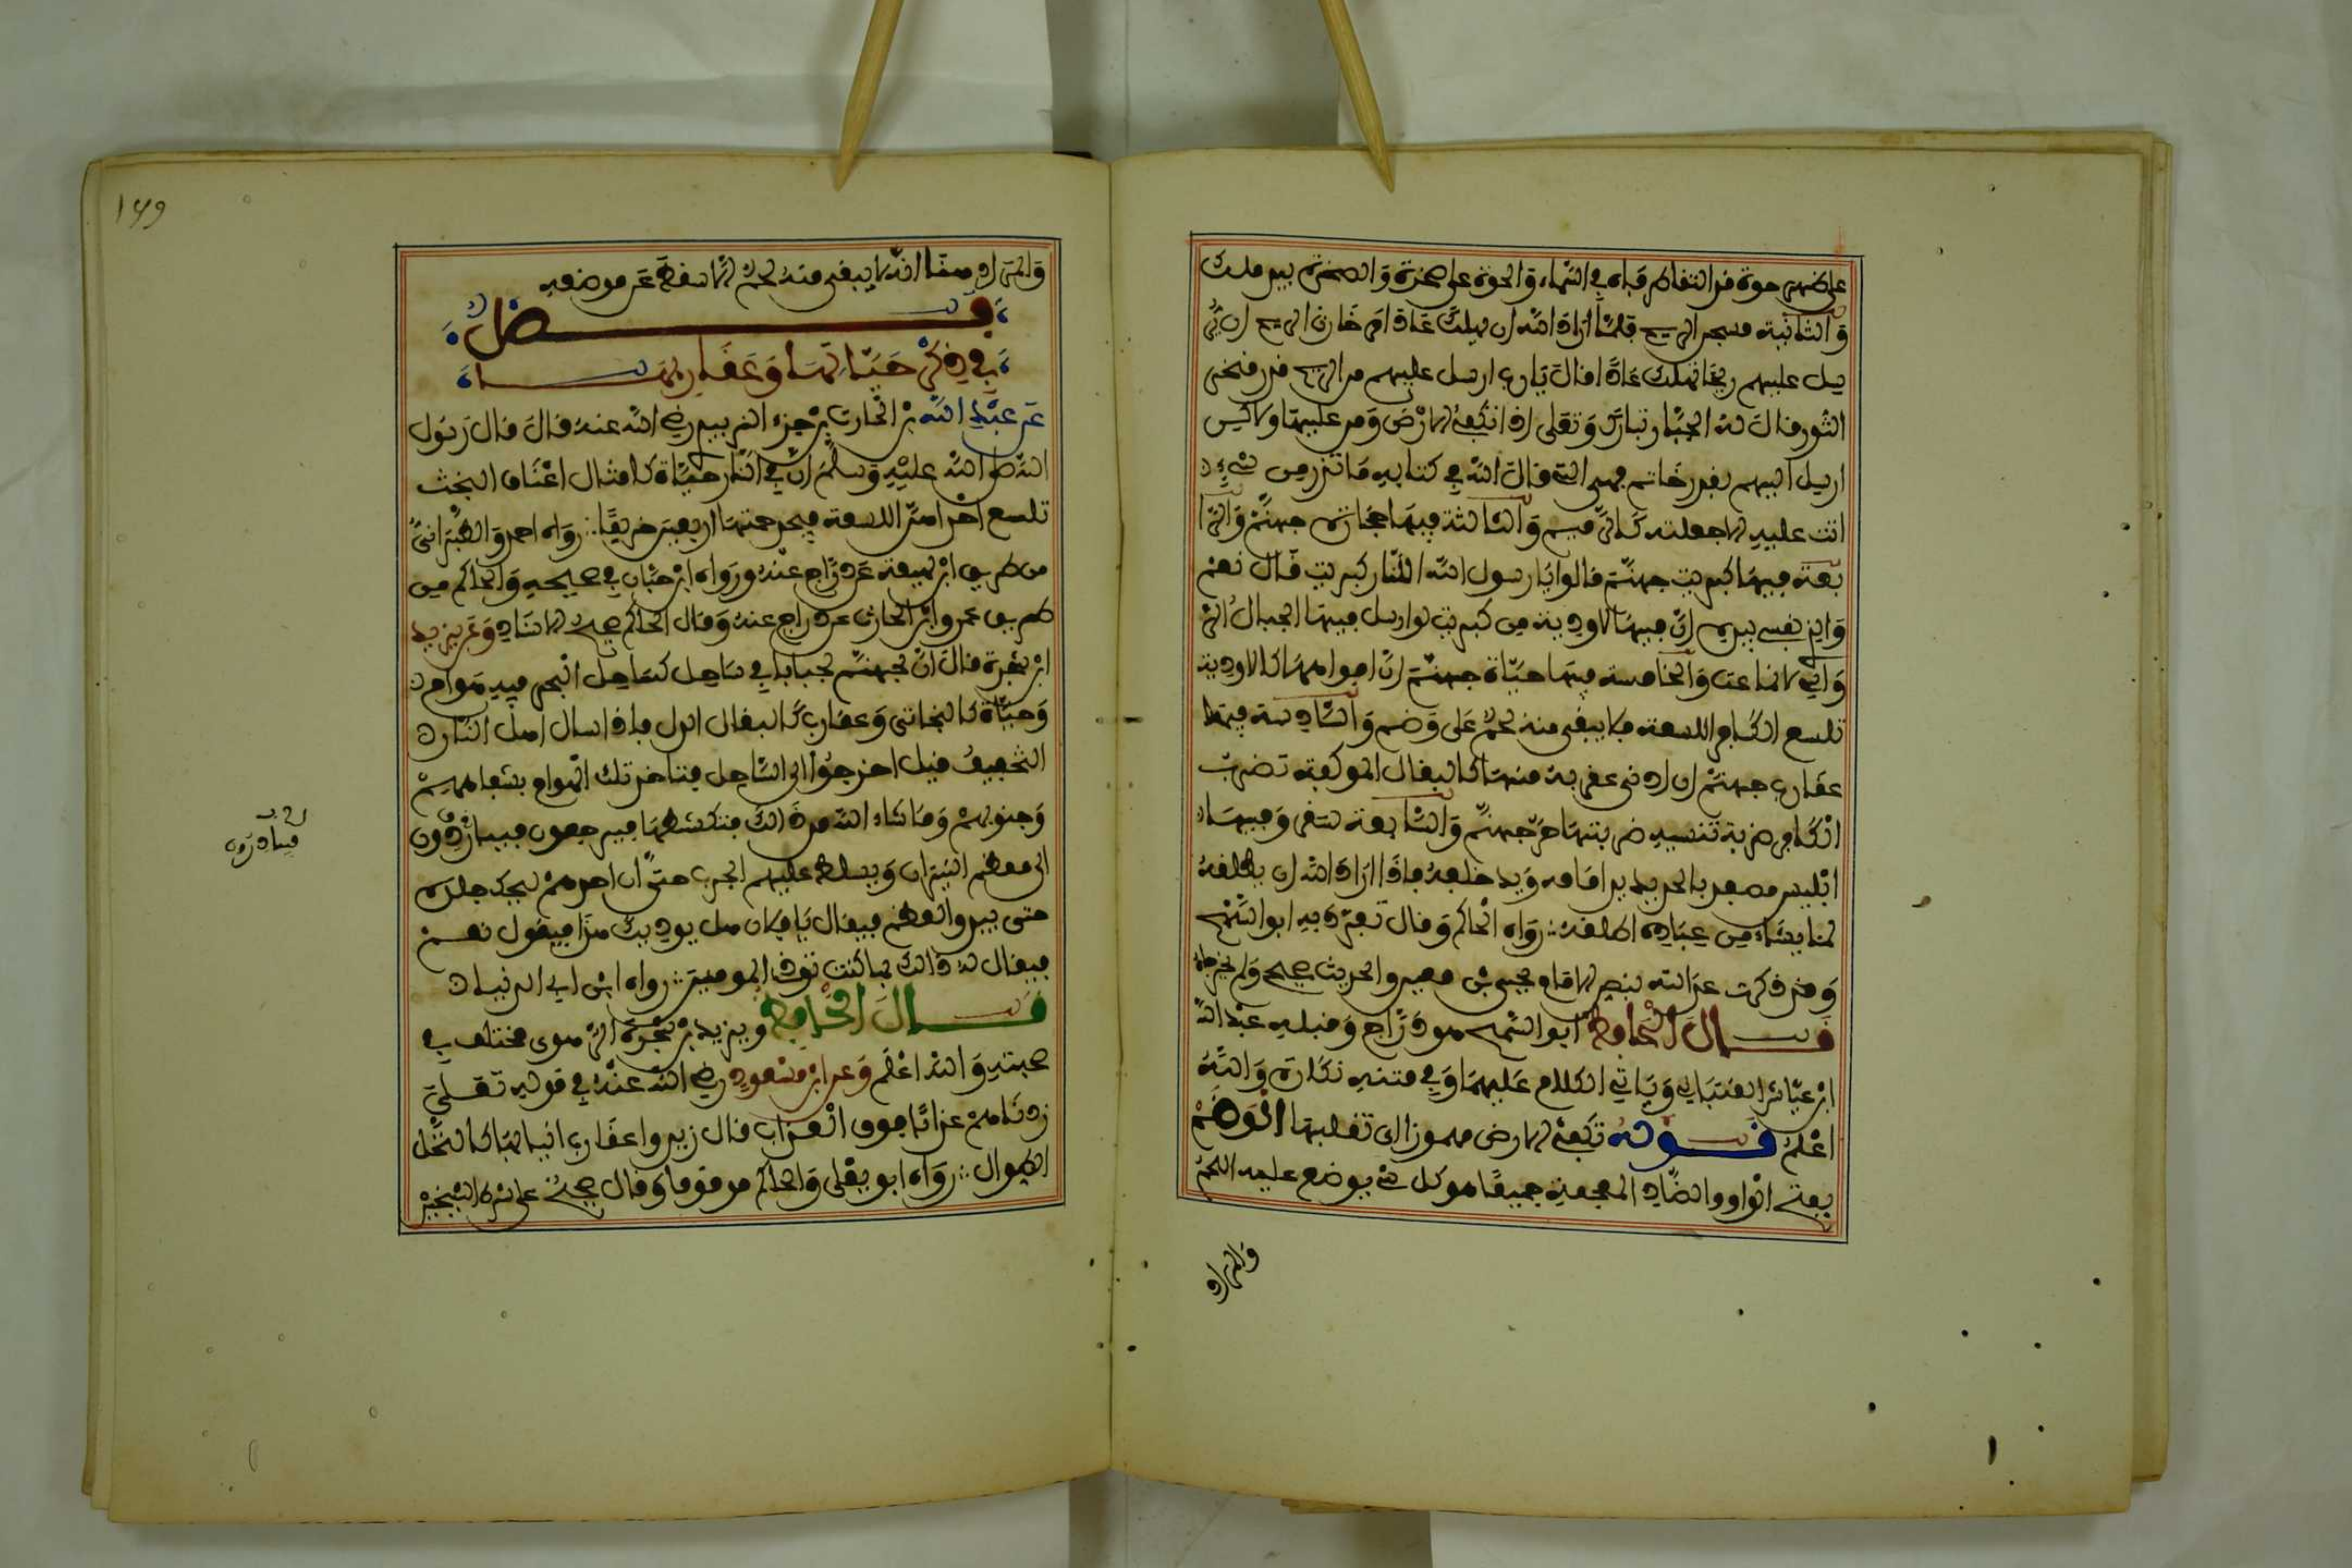 على ظهر حوت فد التفا طرفاه في السماء والحوت على صخرة والصخرة بيد ملك
والثانية مسجن الريح فلما اراد الله ان يهلك عادا امر خازن الريح ان ير
سل عليهم ريحا تهلك عادا فال يارب ارسل عليهم من الريح فدر منخر
الثور فال له الجبار تبارك وتعلى اذا تكفئ الارض ومن عليها ولاكن
ارسل اليهم بفدر خاتم فهي التي فال الله في كتابه ما تذر من شيء
اتت عليه الا جعلته كالرميم والثالثة فيها حجارة جهنم والرا
بعة فيها كبريت جهنم فالوا يا رسول الله اللنار كبريت فال نعم
والذي نفسي بيده ان فيها لاودية من كبريت لو ارسل فيها الجبال الر
واسي لانماعت والخامسة فيها حياة جهنم ان افواهها كالاودية
تلسع الكافر اللسعة فلا يبفى منه لحم على وضم والسادسة فيها
عفارب جهنم ان ادنى عفربة منها كالبغال الموكفة تضرب
الكافر ضربة تنسيه ضربتها حر جهنم والسابعة سفر وفيها
ابليس مصفد بالحديد يد امامه ويد خلفه فاذا اراد الله ان يطلفه
لما يشاء من عباده اطلفه رواه الحاكم وفال تفرد به ابو السمح
وفد ذكرت عدالته بنص الامام يحيى بن معين والحديث صحيح ولم يخرجاه
فال الحافظ ابو السمح هو دراج وفبله عبد الله
ابن عياش الفتباني وياتي الكلام عليهما وفي متنه نكارة والله
اعلم فوله تكفئ الارض مهموزا اي تفلبها الوضم
بفتح الواو والضاد المعجمة جميعا هو كل شيء يوضع عليه اللحم
والمراد
والمراد هنا انه لا يبفى منه لحم الا سفط عن موضعه
فصل
في ذكر حياتها وعفاربها
عن عبد الله بن الحارث بن جزء الزبيدي رضي الله عنه فال فال رسول
الله صلى الله عليه وسلم ان في النار حياة كامثال اعناف البخت
تلسع احداهن اللسعة فيجد حمتها اربعين خريفا رواه احمد والطبراني
من طريف ابن لهيعة عن دراج عنه ورواه ابن حبان في صحيحه والحاكم من
طريف عمرو ابن الحارث عن دراج عنه وفال الحاكم صحيح الاسناد وعن يزيد
ابن شجرة فال ان لجهنم لجبابا في ساحل كساحل البحر فيه هوام
وحياة كالبخاتي وعفارب كالبغال الدل فاذا سال اهل النار
التخفيف فيل اخرجوا الى الساحل فتاخذ تلك الهوام بشفاههم
وجنوبهم وما شاء الله من ذالك فتكشطها فيرجعون فيبادرون
الى معظم النيران ويسلط عليهم الجرب حتى ان احدهم ليحك جلده
حتى يبدو العظم فيفال يا فلان هل يوديك هذا فيفول نعم
فيفال له ذالك بما كنت توذي المومنين رواه ابن ابي الدنيا
فال الحافظ ويزيد بن شجرة الرهوي مختلف في
صحبته والله اعلم وعن ابن مسعود رضي الله عنه في فوله تعلى
زدناهم عذابا فوف العذاب فال زيدوا عفارب انيابها كالنخل
الطوال رواه ابو يعلى والحاكم موفوفا وفال صحيح على شرط الشيخين
فيبادرون